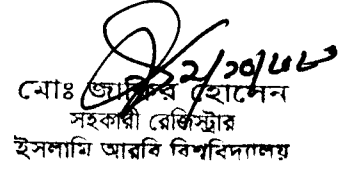 মোঃ জাকির হোসেন
সহকারী রেজিস্ট্রার
ইসলামি আরবি বিশ্ববিদ্যালয়